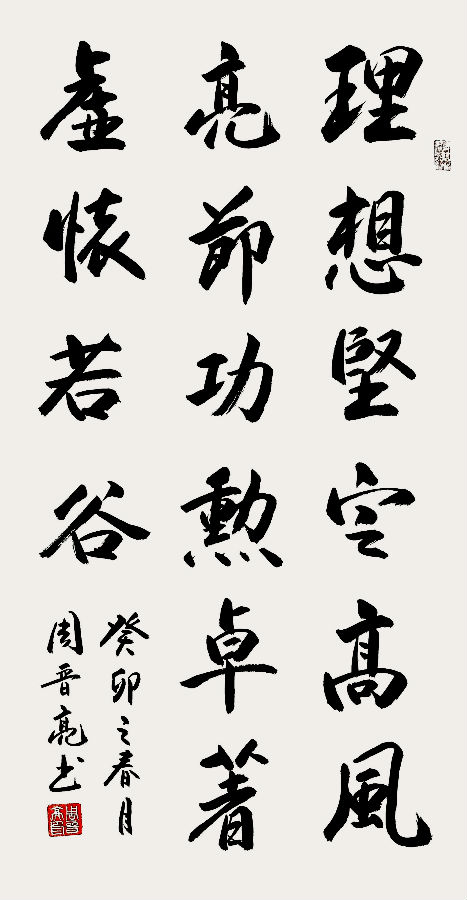 理想堅定高風
亮節功勲卓著
虚懐若谷
癸卯之春月
周晋亮书